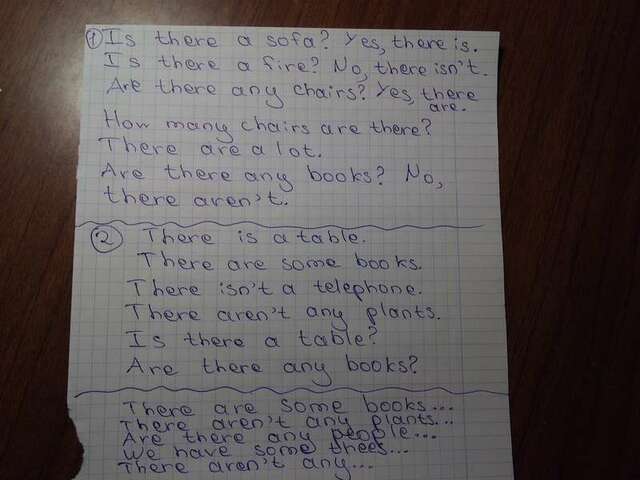 1 Is there a sofa? Yes, there is.
Is there a fire? No, there isn't.
Are there any chairs? Yes, there
are.
How many chairs are there?
There are a lot.
Are there any books? No,
there aren't.
2 There is a table.
There are some books.
There isn't a telephone.
There aren't any plants.
Is there a table?
Are there any books?
There are some books...
There aren't any plants...
Are there any people...
We have some threes...
There aren't any...